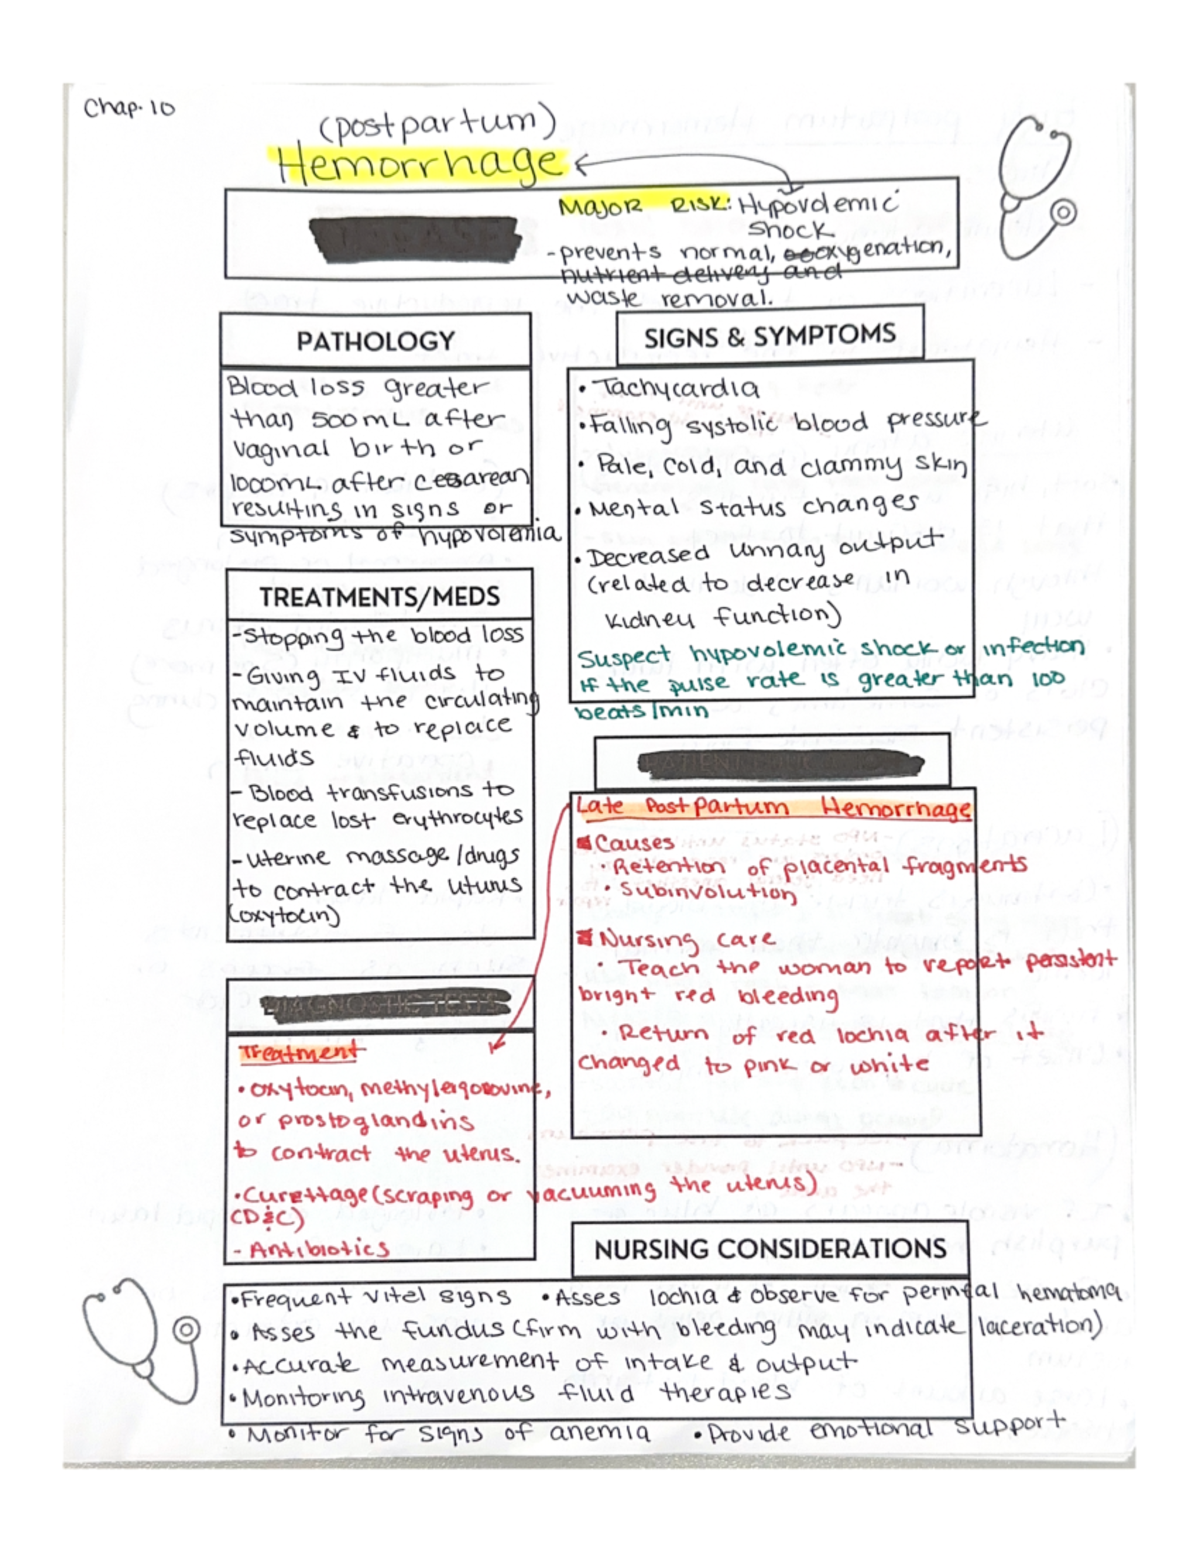 Chap. 10
(postpartum)
Hemorrhage
Major Risk: Hypovolemic
Shock
- prevents normal, oxygenation,
nutrient delivery and
waste removal.
PATHOLOGY
Blood loss greater
than 500mL after
vaginal birth or
1000mL after cesarean
resulting in signs or
symptoms of hypovolemia
SIGNS & SYMPTOMS
• Tachycardia
• Falling systolic blood pressure
• Pale, cold, and clammy skin
• Mental status changes
• Decreased urinary output
(related to decrease in
kidney function)
Suspect hypovolemic shock or infection
if the pulse rate is greater than 100
beats/min
TREATMENTS/MEDS
- Stopping the blood loss
- Giving IV fluids to
maintain the circulating
volume & to replace
fluids
- Blood transfusions to
replace lost erythrocytes
- Uterine massage/drugs
to contract the uturus
(oxytocin)
Late Postpartum Hemorrhage
Causes
• Retention of placental fragments
• Subinvolution
Nursing care
• Teach the woman to report persistent
bright red bleeding
• Return of red lochia after it
changed to pink or white
DIAGNOSTIC TESTS
Treatment
• Oxytocin, methylergosovine,
or prostoglandins
to contract the uterus.
• Curettage (scraping or vacuuming the uterus)
(D&C)
- Antibiotics
NURSING CONSIDERATIONS
• Frequent vitel signs • Asses lochia & observe for perineal hematoma
• Asses the fundus (firm with bleeding may indicate laceration)
• Accurate measurement of intake & output
• Monitoring intravenous fluid therapies
• Monitor for signs of anemia • Provide emotional support